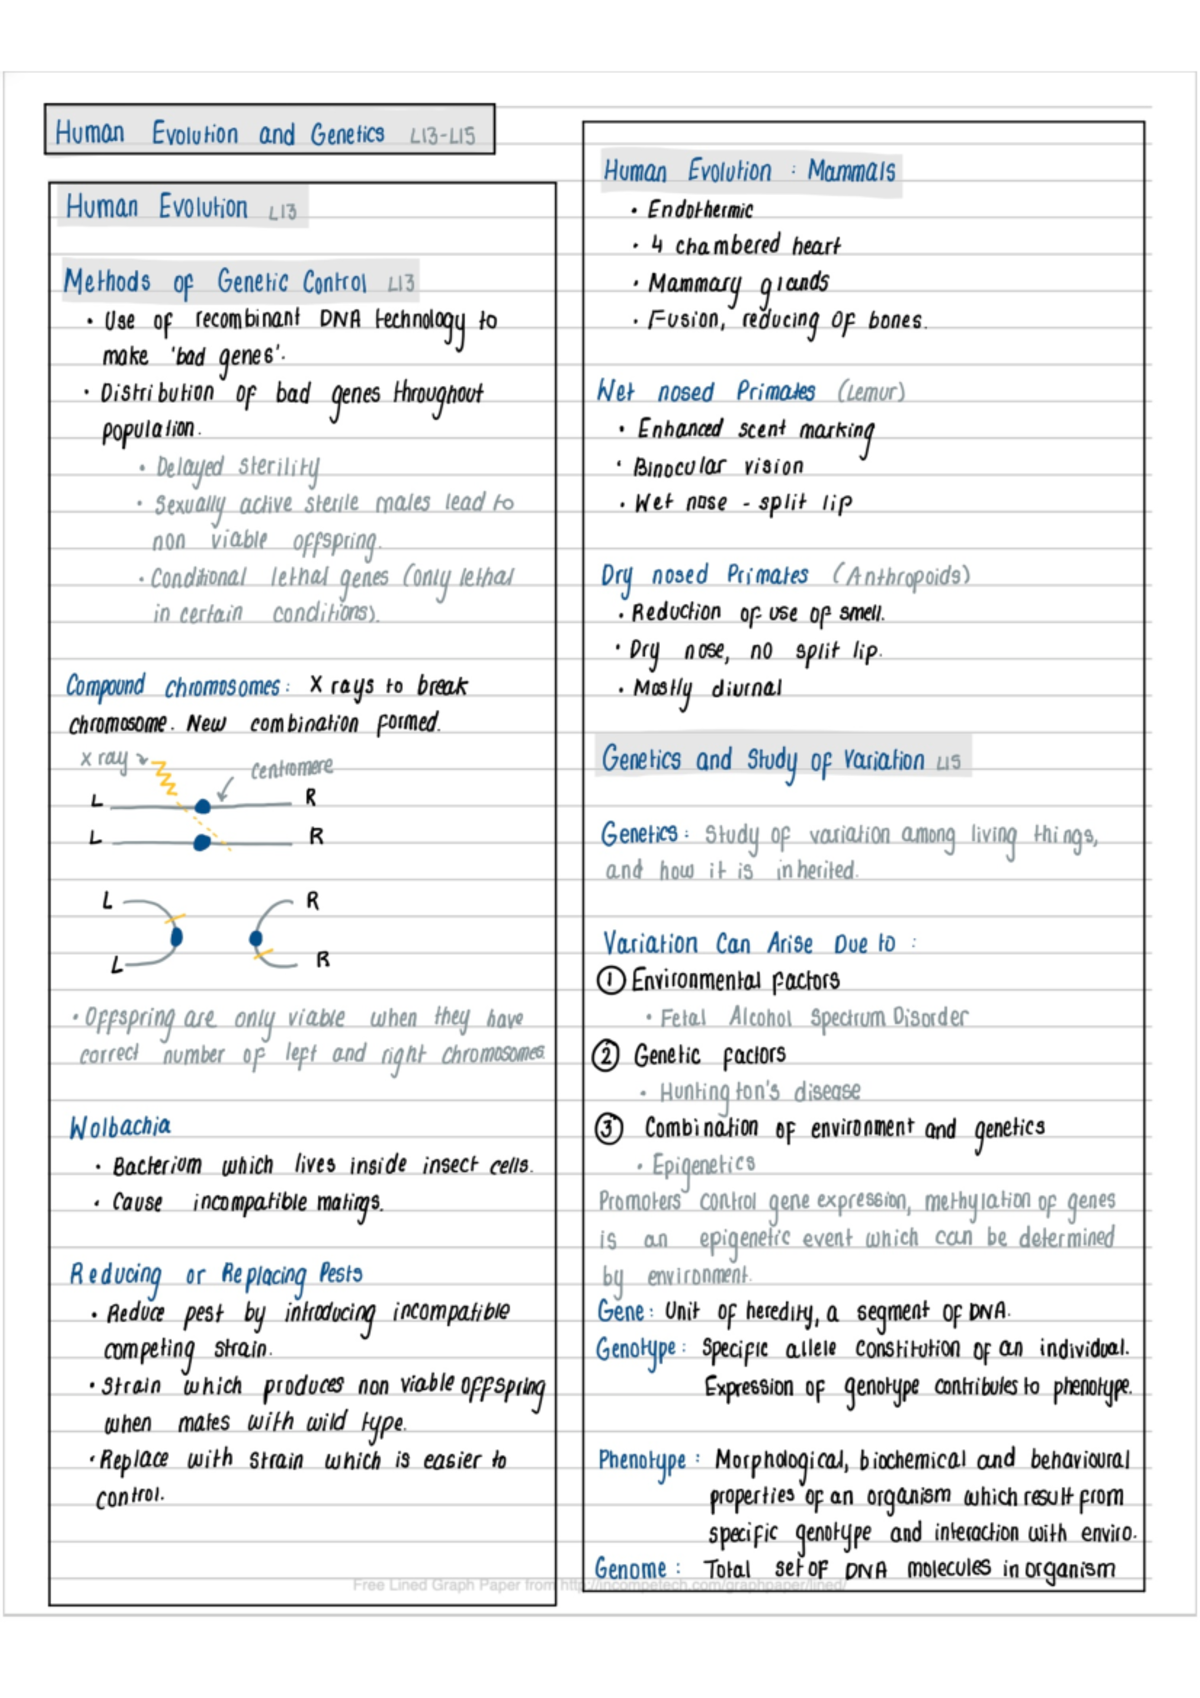 Human Evolution and Genetics L13-L15
Human Evolution L13
Methods of Genetic Control L13
• Use of recombinant DNA technology to
make 'bad genes'.
• Distribution of bad genes throughout
population.
• Delayed sterility
• Sexually active sterile males lead to
non viable offspring.
• Conditional lethal genes (only lethal
in certain conditions).
Compound chromosomes: X rays to break
chromosome. New combination formed.
X ray
centromere
L R
L R
L R
L R
• Offspring are only viable when they have
correct number of left and right chromosomes.
Wolbachia
• Bacterium which lives inside insect cells.
• Cause incompatible matings.
Reducing or Replacing Pests
• Reduce pest by introducing incompatible
competing strain.
• Strain which produces non viable offspring
when mates with wild type.
• Replace with strain which is easier to
control.
Human Evolution : Mammals
• Endothermic
• 4 chambered heart
• Mammary glands
• Fusion, reducing of bones.
Wet nosed Primates (Lemur)
• Enhanced scent marking
• Binocular vision
• Wet nose - split lip
Dry nosed Primates (Anthropoids)
• Reduction of use of smell.
• Dry nose, no split lip.
• Mostly diurnal
Genetics and Study of Variation L15
Genetics: Study of variation among living things,
and how it is inherited.
Variation Can Arise Due to :
① Environmental factors
• Fetal Alcohol Spectrum Disorder
② Genetic factors
• Huntington's disease
③ Combination of environment and genetics
• Epigenetics
Promoters control gene expression, methylation of genes
is an epigenetic event which can be determined
by environment.
Gene: Unit of heredity, a segment of DNA.
Genotype: Specific allele constitution of an individual.
Expression of genotype contributes to phenotype.
Phenotype: Morphological, biochemical and behavioural
properties of an organism which result from
specific genotype and interaction with enviro.
Genome: Total set of DNA molecules in organism
Free Lined Graph Paper from http://incompetech.com/graphpaper/lined/